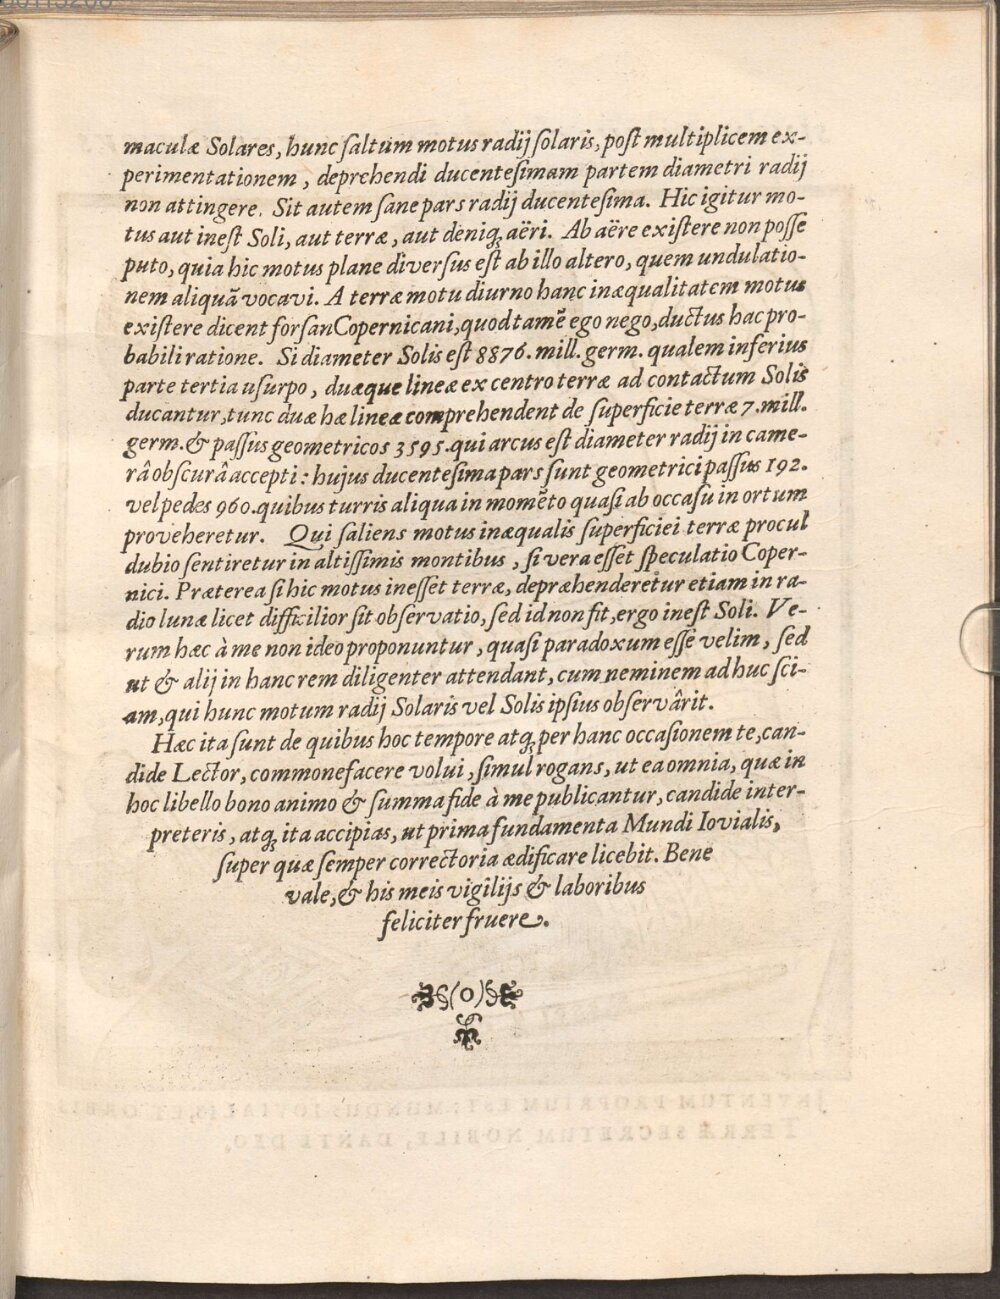 maculæ Solares, hunc ſaltum motus radij ſolaris, poſt multiplicem ex-
perimentationem, deprehendi ducenteſimam partem diametri radij
non attingere. Sit autem ſane pars radij ducenteſima. Hic igitur mo-
tus aut ineſt Soli, aut terræ, aut deniq; aëri. Ab aëre exiſtere non poſſe
puto, quia hic motus plane diverſus eſt ab illo altero, quem undulatio-
nem aliquã vocavi. A terræ motu diurno hanc inæqualitatem motus
exiſtere dicent forſan Copernicani, quod tamẽ ego nego, ductus hac pro-
babili ratione. Si diameter Solis eſt 8876. mill. germ. qualem inferius
parte tertia uſurpo, duæque lineæ ex centro terræ ad contactum Solis
ducantur, tunc duæ hæ lineæ comprehendent de ſuperficie terræ 7. mill.
germ. & paſſus geometricos 3595. qui arcus eſt diameter radij in came-
râ obſcurâ accepti: hujus ducenteſima pars ſunt geometrici paſſus 192.
vel pedes 960. quibus turris aliqua in momẽto quaſi ab occaſu in ortum
proveheretur. Qui ſaliens motus inæqualis ſuperficiei terræ procul
dubio ſentiretur in altiſſimis montibus, ſi vera eſſet ſpeculatio Coper-
nici. Præterea ſi hic motus ineſſet terræ, depræhenderetur etiam in ra-
dio lunæ licet difficilior ſit obſervatio, ſed id non fit, ergo ineſt Soli. Ve-
rum hæc à me non ideo proponuntur, quaſi paradoxum eſſe velim, ſed
ut & alij in hanc rem diligenter attendant, cum neminem ad huc ſci-
am, qui hunc motum radij Solaris vel Solis ipſius obſervârit.
Hæc ita ſunt de quibus hoc tempore atq; per hanc occaſionem te, can-
dide Lector, commonefacere volui, ſimul rogans, ut ea omnia, quæ in
hoc libello bono animo & ſumma fide à me publicantur, candide inter-
preteris, atq; ita accipias, ut prima fundamenta Mundi Iovialis,
ſuper quæ ſemper correctoria ædificare licebit. Bene
vale, & his meis vigilijs & laboribus
feliciter fruere.